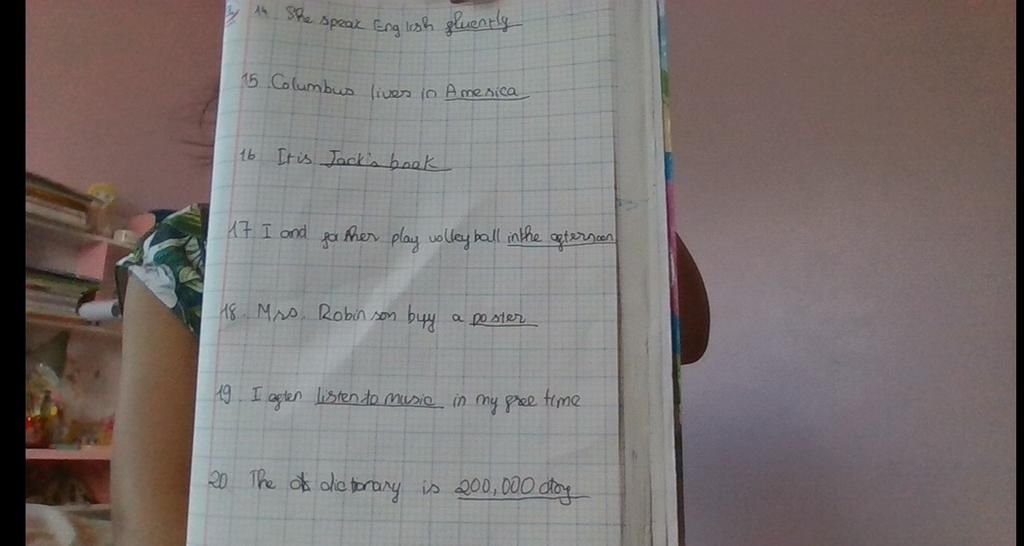 14. She speak English fluently
15. Columbus lives in America
16. It is Jack's book
17. I and father play volleyball in the afternoon
18. Mrs. Robinson buy a poster
19. I often listen to music in my free time
20. The dictionary is 200,000 dong